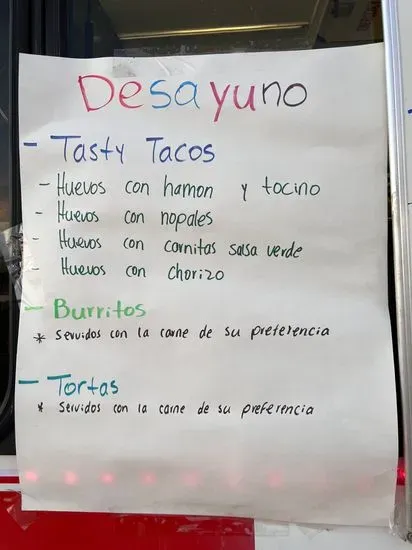 Desayuno
- Tasty Tacos
- Huevos con hamon y tocino
- Huevos con nopales
- Huevos con carnitas salsa verde
- Huevos con chorizo
- Burritos
* Servidos con la carne de su preferencia
- Tortas
* Servidos con la carne de su preferencia